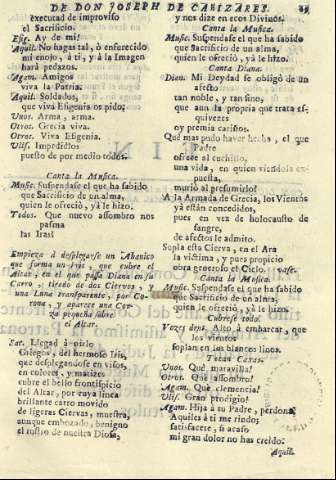 DE DON JOSEPH DE CAÑIZARES. 39
executad de improviso
el Sacrificio.
Efig. Ay de mi!
Aquil. No hagas tal, ò enfurecido
mi enojo, à ti, y à la Imagen
harà pedazos.
Agam. Amigos
viva la Patria.
Aquil. Soldados,
que viva Efigenia os pido.
Unos. Arma, arma.
Otros. Grecia viva.
Otros. Viva Efigenia.
Ulis. Impedidlos
puesto de por medio todos.
Canta la Musica.
Music. Suspendase el que ha sabido
que Sacrificio de un alma,
quien le ofreciò, yà le hizo.
Todos. Que nuevo assombro nos
pasma
las Iras!
Empieza à desplegarse un Abanico
que forma un Iris, que cubre el
Altar, en el que passa Diana en su
Carro, tirado de dos Ciervos, y
una Luna transparente, por Co-
rona, y aparece una Cier-
va pequeña sobre
el Altar.
Sac. Llegad à oirlo
Griegos, del hermoso Iris,
que desplegandose en visos,
en colores, y matices
cubre el bello frontispicio
del Altar, por cuya linea
brillante carro movido
de ligeras Ciervas, muestra,
aunque embozado, benigno
el rostro de nuestra Diosa,
y nos dize en ecos Divinos.
Canta la Musica.
Music. Suspendase el que ha sabido
que Sacrificio de un alma,
quien le ofreciò, yà le hizo.
Canta Diana.
Dian. Mi Deydad se obligò de un
afecto
tan noble, y tan fino,
que aun la propria que trata es-
quivezes
oy premia cariños.
Què mas pudo haver hecho, el que
Padre
ofrece al cuchillo,
una vida, en quien viendola ex-
puesta,
muriò al presumirlo!
A la Armada de Grecia, los Vientos
yà estàn concedidos,
pues en vez de holocausto de
sangre,
de afectos le admito.
Supla esta Cierva, en el Ara
la victima, y pues propicio
obra generoso el Cielo. vase.
Canta la Musica.
Music. Suspendase el que ha sabido
que Sacrificio de una alma,
quien le ofreciò, yà le hizo.
Cubrese todo.
Vozes dent. Alto à embarcar, que
los vientos
soplan en las blancas linos.
Tocan Caxas.
Unos. Què maravilla!
Otros. Què assombro!
Aquil. Què clemencia!
Ulis. Gran prodigio!
Agam. Hija à tu Padre, perdona,
Aquiles à ti me rindo;
satisfacete, si acaso
mi gran dolor no has creido.
Aquil.